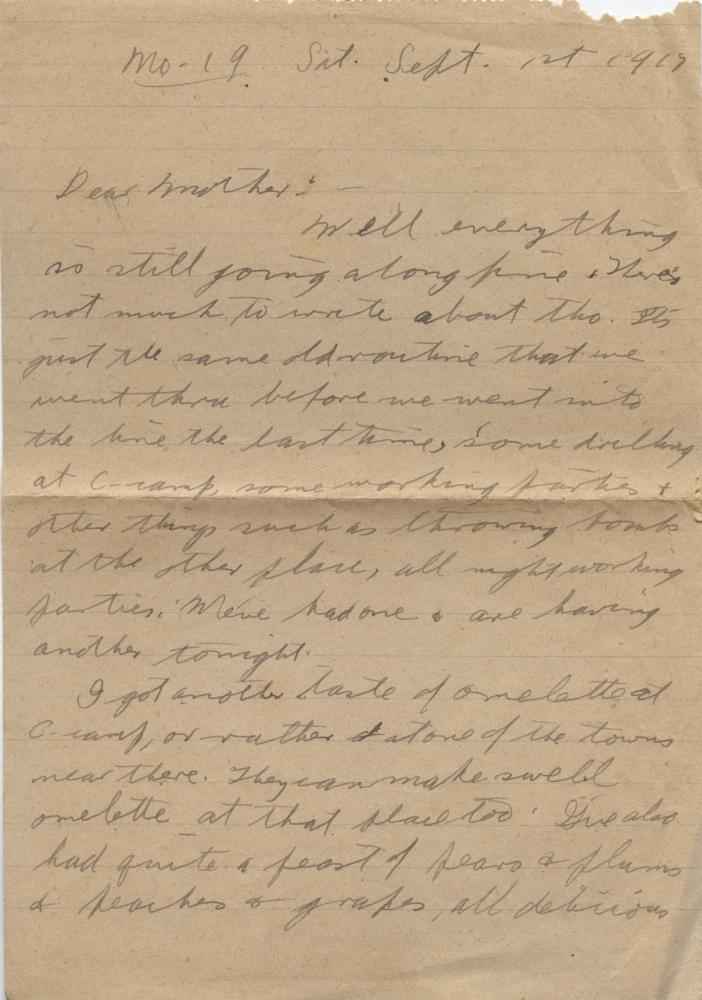 Mo-19 Sat. Sept. 1st 1917
Dear Mother:—
Well everything
is still going along fine. There's
not much to write about tho. Its
just the same old routine that we
went thru before we went into
the line the last time, some drilling
at C-camp, some working parties &
other things such as throwing bombs
at the other place, all night working
parties. We've had one & are having
another tonight.
I got another taste of omelette at
C-camp, or rather at one of the towns
near there. They can make swell
omelette at that place too. I've also
had quite a feast of pears & plums
& peaches & grapes, all delicious